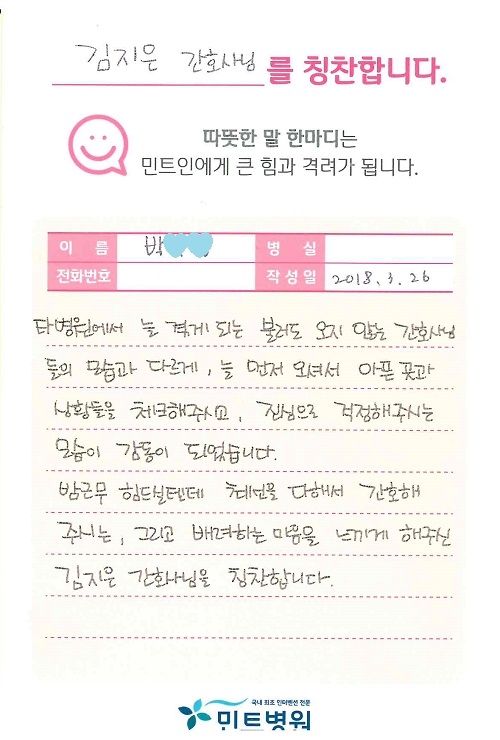 김지은 간호사님 를 칭찬합니다.
따뜻한 말 한마디는
민트인에게 큰 힘과 격려가 됩니다.
이 름 박 병 실
전화번호 작성일 2018. 3. 26
타병원에서 늘 겪게 되는 불러도 오지 않는 간호사님
들의 모습과 다르게, 늘 먼저 오셔서 아픈 곳과
상황들을 체크해주시고, 진심으로 걱정해주시는
모습이 감동이 되었습니다.
밤근무 힘드실텐데 최선을 다해서 간호해
주시는, 그리고 배려하는 마음을 느끼게 해주신
김지은 간호사님을 칭찬합니다.
국내 최초 인터벤션 전문
민트병원